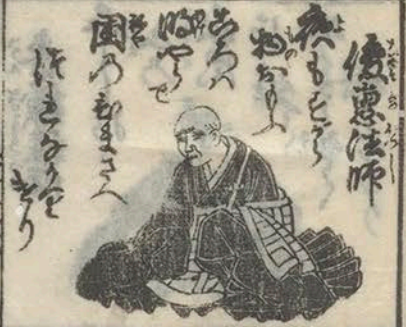 俊惠法師
夜もすがら
物おもふ
ころは
明やらで
閨のひまさへ
つれなかり
けり